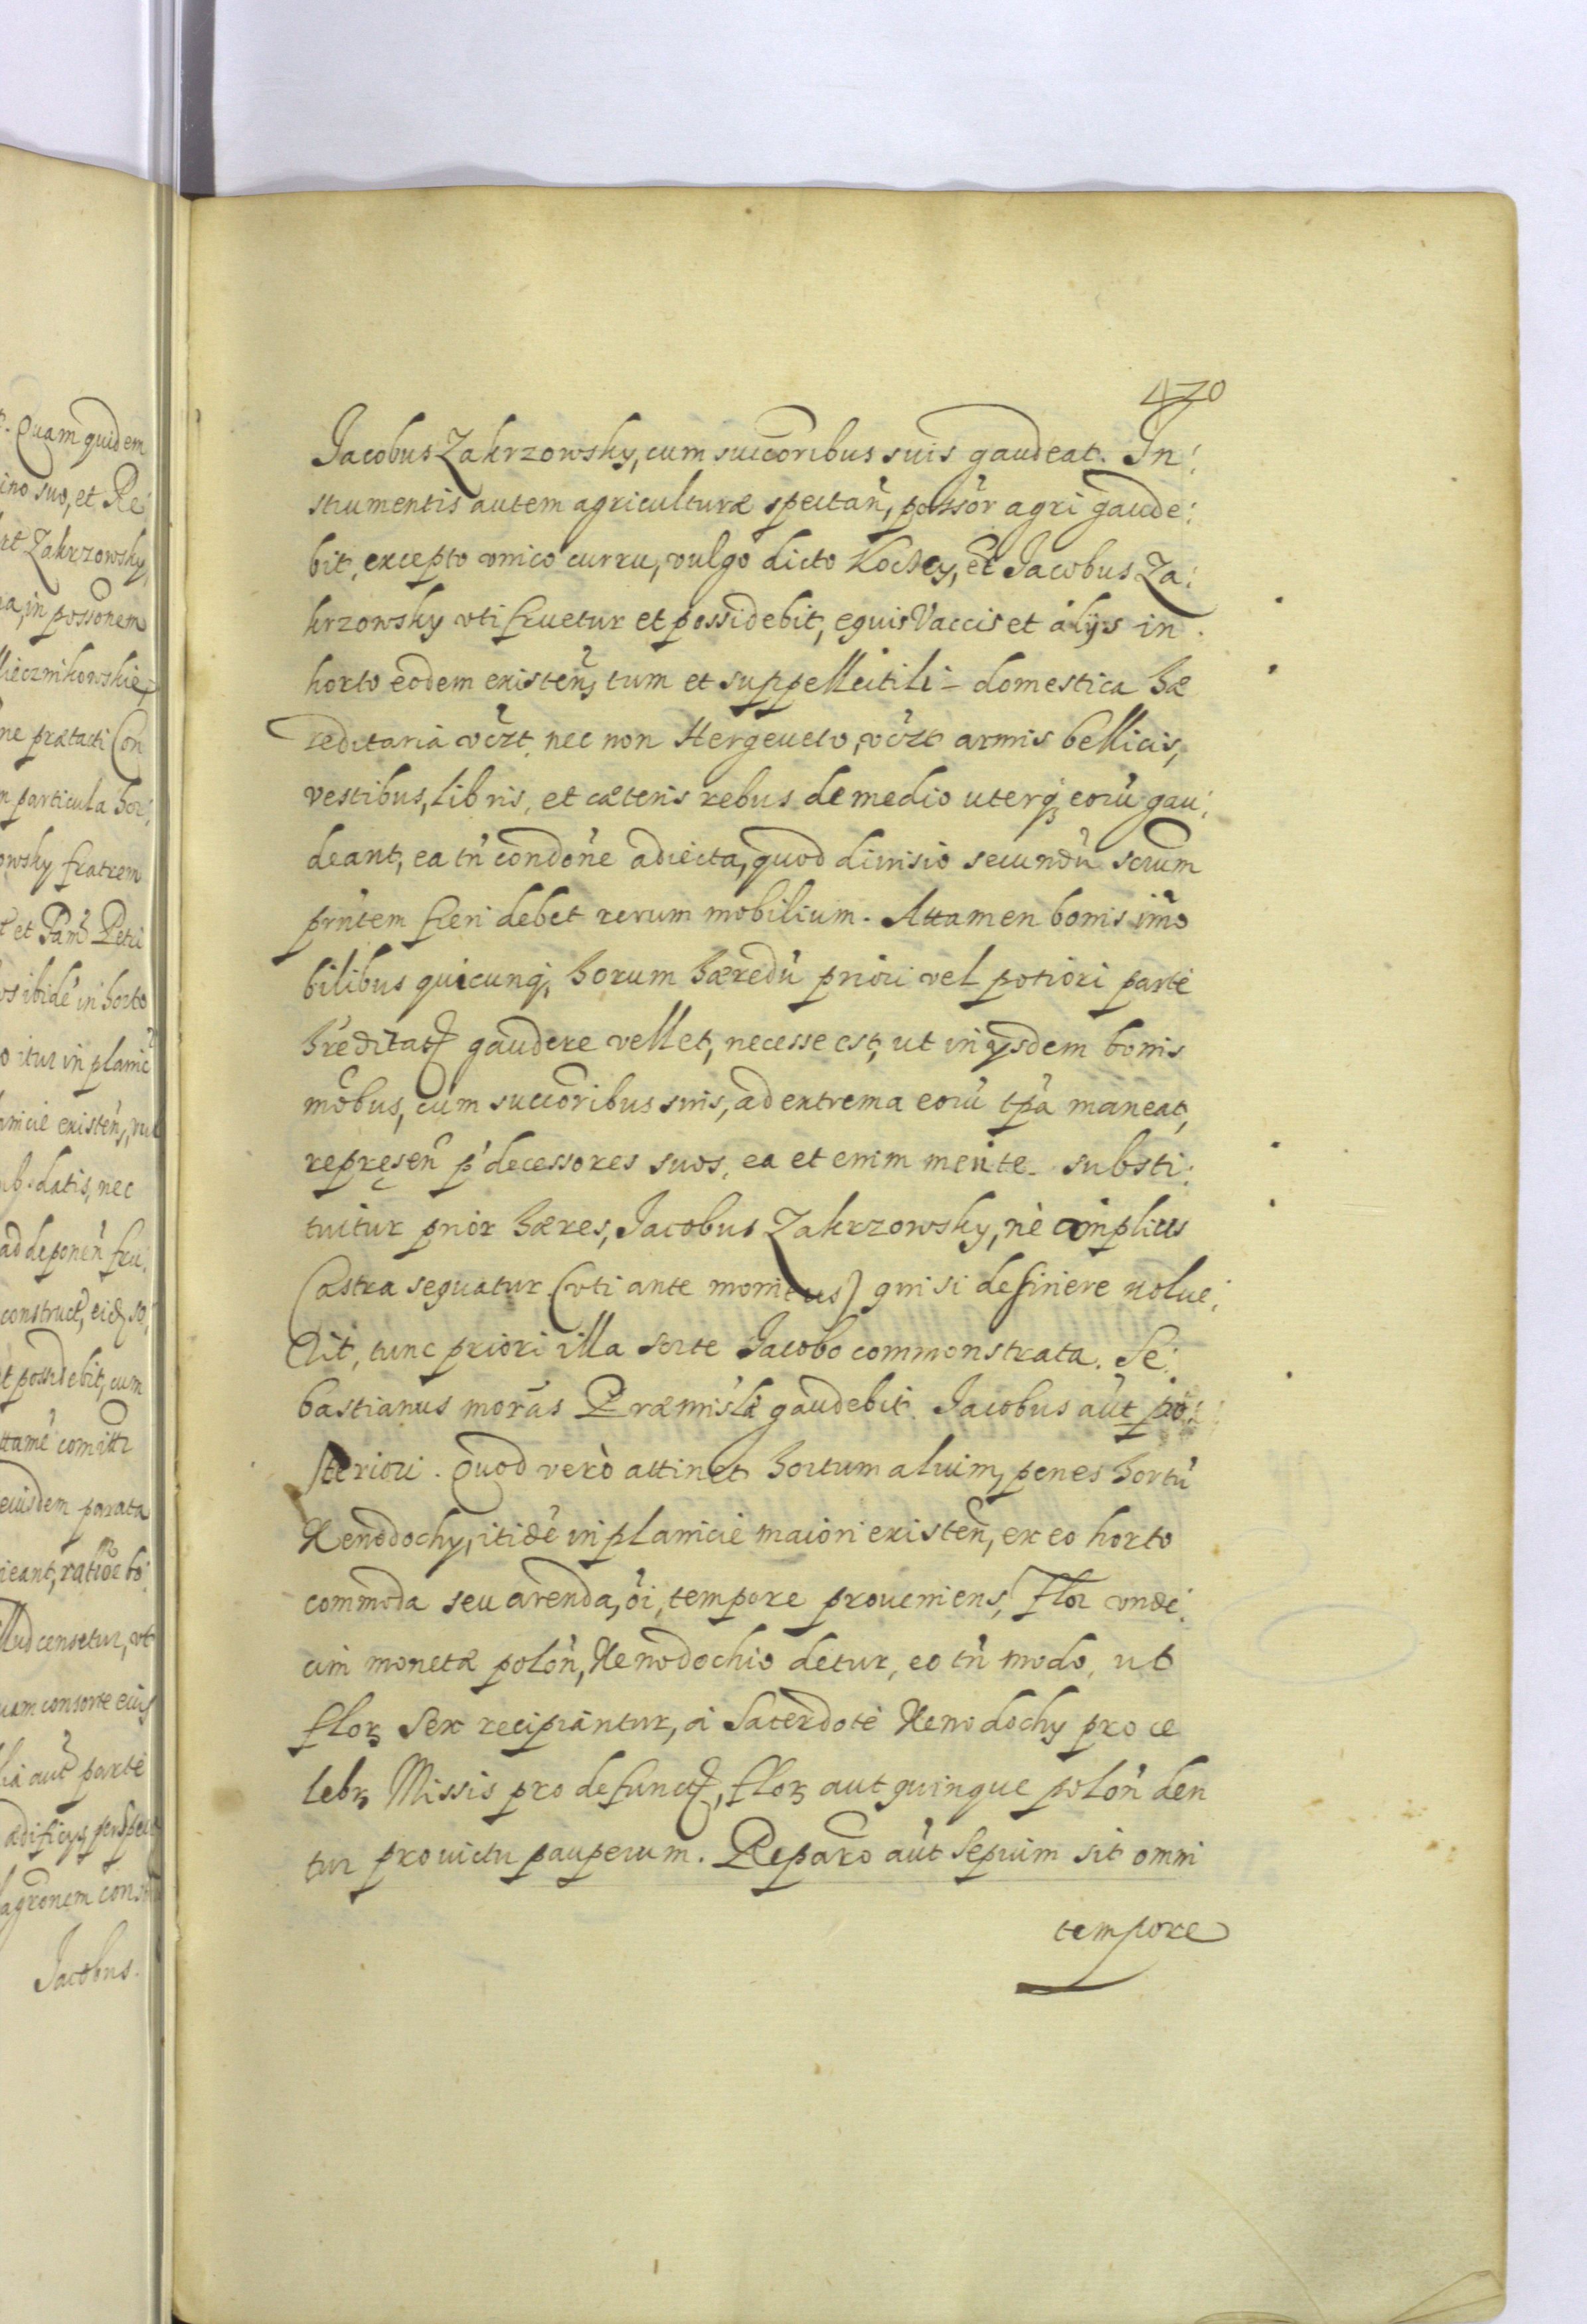 420
Jacobus Zakrzowsky, cum succoribus suis gaudeat. In:
strumentis autem agriculturæ spectan̄, possor agri gaude:
bit, excepto vnico curru, vulgo dicto Koczy, et Jacobus Za:
krzowsky vti fruetur et possidebit, equis Vaccis et alijs in
horto eodem existen̄, tum et suppellectili – domestica hæ
reditaria vczt nec non Hergeueto, vczt armis bellicis,
vestibus, libris, et cæteris rebus de medio uterq3 eorū gau:
deant, ea tn̄ condōne adiecta, quod diuisio secundū scrum
prn̄tem fieri debet rerum mobilium. Attamen bonis im̄o
bilibus quicunq3 horum hæredū priori vel potiori parte
hreditat gaudere vellet, necesse est, ut in ysdem bonis
mōbus, cum succoribus suis, ad extrema eorū tp̄a maneat,
repręsen̄ p̄decessores suos, ea et enim mente substi:
tuitur prior hæres, Jacobus Zakrzowsky, ne amplius
Castra sequatur (vti ante monitus) qui si definere nolue:
rit, tunc priori illa sorte Jacobo commonstrata. Se:
bastianus morās Præmislæ gaudebit. Jacobus aūt po:
steriori. Quod verò attinet hortum aluim, penes hortū
Xenodochy, itidē in planicie maiori existen̄, ex eo horto
commoda seu arenda, ōi, tempore proueniens, Flor vnde:
cim monetæ polōn, Xenodochio detur, eo tn̄ modo, ut
flor3 Sex recipiantur, à Sacerdote Xenodochy pro ce
lebr3 Missis pro defunct, flor3 aut quinque polōn den
tur pro victu pauperum. Reparō aūt Sepium sit omni
tempore
. Quam quidem
ino suo, et Re:
rt Zakrzowsky,
a, in possōnem
iecznikowskie,
ne prætacti Con
particula hor:
owsky fratrem
et Pan̄ Petri
os ibidē in horto
itur in planic
anicie existen̄,
datis, nec
ad deponen̄ fru:
construct, eid so:
t possidebit, cum
ttamē comitti
eiusdem parata
ieant, ratiōe bo
illud censetur, vt
uam consorte eius
ia aut parte
ædificys, perspec
agrōnem cons
Jacobus.